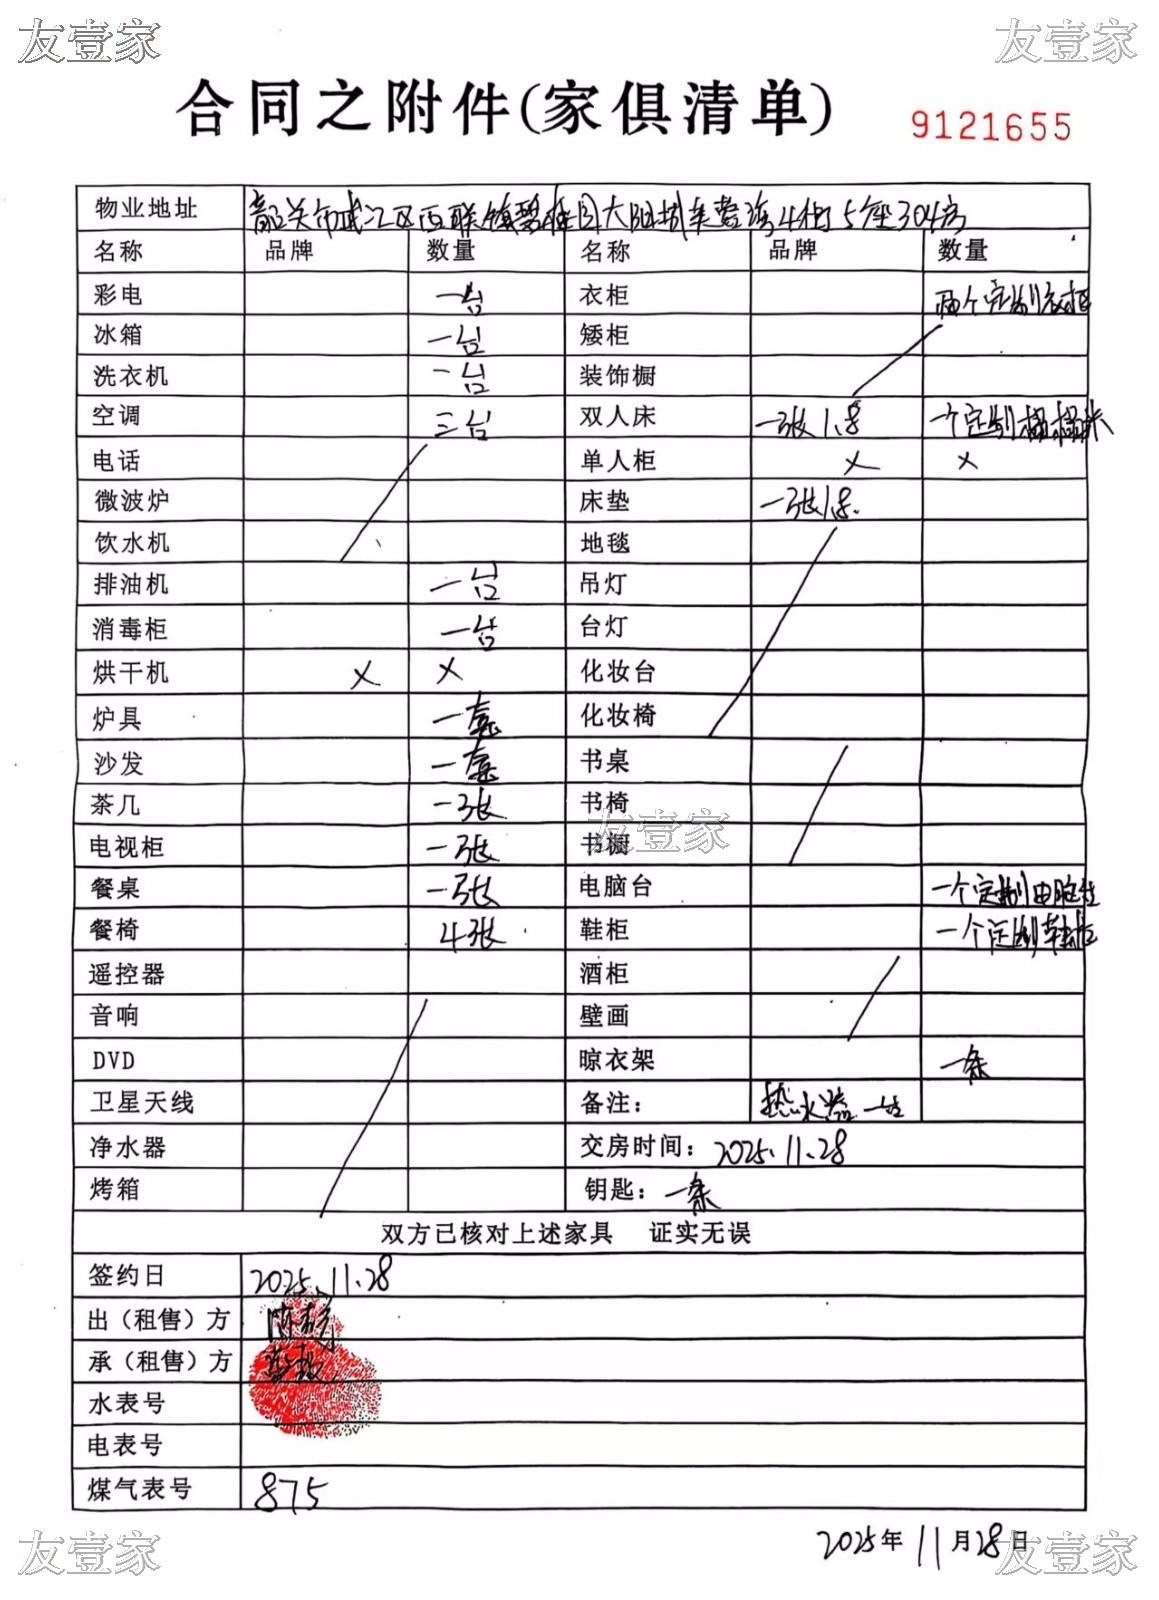 友壹家 友壹家
合同之附件(家俱清单) 9121655
物业地址 韶关市武江区西联镇碧桂园太阳城 4街5座304房
名称 品牌 数量 名称 品牌 数量
彩电 一台 衣柜 两个定制衣柜
冰箱 一台 矮柜
洗衣机 一台 装饰橱
空调 三台 双人床 一张1.8 一个定制榻榻米
电话 单人柜 × ×
微波炉 床垫 一张1.8.
饮水机 地毯
排油机 一台 吊灯
消毒柜 一台 台灯
烘干机 × × 化妆台
炉具 一套 化妆椅
沙发 一套 书桌
茶几 一张 书椅
友壹家
电视柜 一张 书橱
餐桌 一张 电脑台 一个定制电脑台
餐椅 4张 鞋柜 一个定制鞋柜
遥控器 酒柜
音响 壁画
DVD 晾衣架 一条
卫星天线 备注: 热水器一台
净水器 交房时间: 2025.11.28
烤箱 钥匙: 一条
双方已核对上述家具 证实无误
签约日 2025.11.28
出（租售）方
承（租售）方
水表号
电表号
煤气表号 875
2025年11月28日
友壹家 友壹家